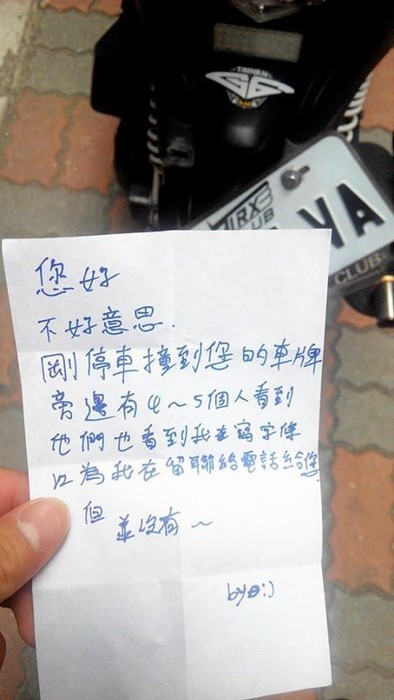 TAINAN
G6
TIRX
CLUB
VA
CLUB
您好
不好意思.
剛停車撞到您的車牌
旁邊有4~5個人看到
他們也看到我在寫字條
以為我在留聯絡電話給您
但
並沒有~
bye:)